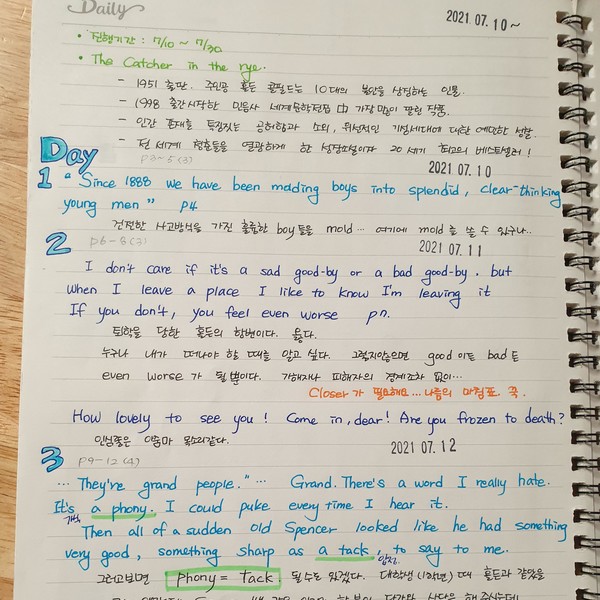 Daily
2021. 07. 10 ~
• 진행기간 : 7/10 ~ 7/30
• The Catcher in the rye.
- 1951 출판. 주인공 홀든 콜필드는 10대의 불안을 상징하는 인물.
- 1998 출간시작한 민음사 세계문학전집 中 가장 많이 팔린 작품.
- 인간 존재를 특징짓는 공허함과 소외, 위선적인 기성세대에 대한 예민한 성찰.
- 전 세계 청춘들을 열광하게 한 성장소설이자 20세기 최고의 베스트셀러!
Day
p3~5 (3)
2021. 07. 10
1 "Since 1888 we have been molding boys into splendid, clear-thinking
young men" p4
건전한 사고방식을 가진 훌륭한 boy들을 mold... 여기에 mold를 쓸 수 있구나..
2 p6-8 (3)
2021. 07. 11
I don't care if it's a sad good-by or a bad good-by. but
when I leave a place I like to know I'm leaving it
If you don't, you feel even worse p7.
퇴학을 당한 홀든의 항변이다. 옳다.
누구나 내가 떠나야 할 때를 알고 싶다. 그렇지않으면 good이든 bad든
even worse가 될 뿐이다. 가해자나 피해자의 경계조차 없이...
Closer가 필요해요... 나름의 마침표. 꾹.
How lovely to see you! Come in, dear! Are you frozen to death?
인심좋은 아줌마 목소리같다.
2021 07. 12
3 p9-12 (4)
... They're grand people." ... Grand. There's a word I really hate.
It's a phony. I could puke every time I hear it.
Then all of a sudden old Spencer looked like he had something
very good, something sharp as a tack, to say to me..
압정.
그러고보면 phony = tack 될수도 있겠다. 대학생 (1학년) 때 홀든과 같았을